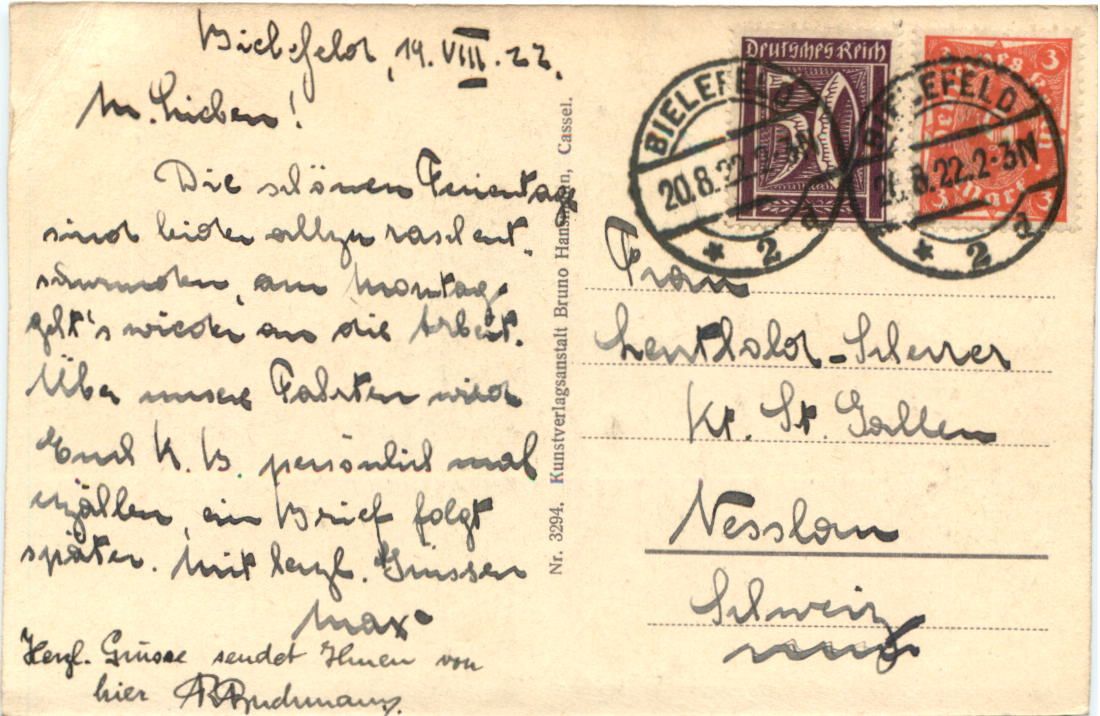 Bielefeld, 19. VIII. 22.
M. Lieben!
Die schönen Ferientage
sind leider allzu rasch ent-
schwunden, am Montag
geht's wieder an die Arbeit.
Über unsere Fahrten wird
Euch K. B. persönlich mal
erzählen, ein Brief folgt
später. Mit herzl. Grüssen
Max
Herzl. Grüsse sendet Ihnen von
hier
Nr. 3294. Kunstverlagsanstalt Bruno Hansmann, Cassel.
Deutsches Reich
BIELEFELD
20.8.22.2-3N
* 2 d
3 3
Deutsches Reich
Mark
3 3
BIELEFELD
20.8.22.2-3N
* 2 d
Frau
Leuthold-Scherrer
Kt. St. Gallen
Nesslau
Schweiz